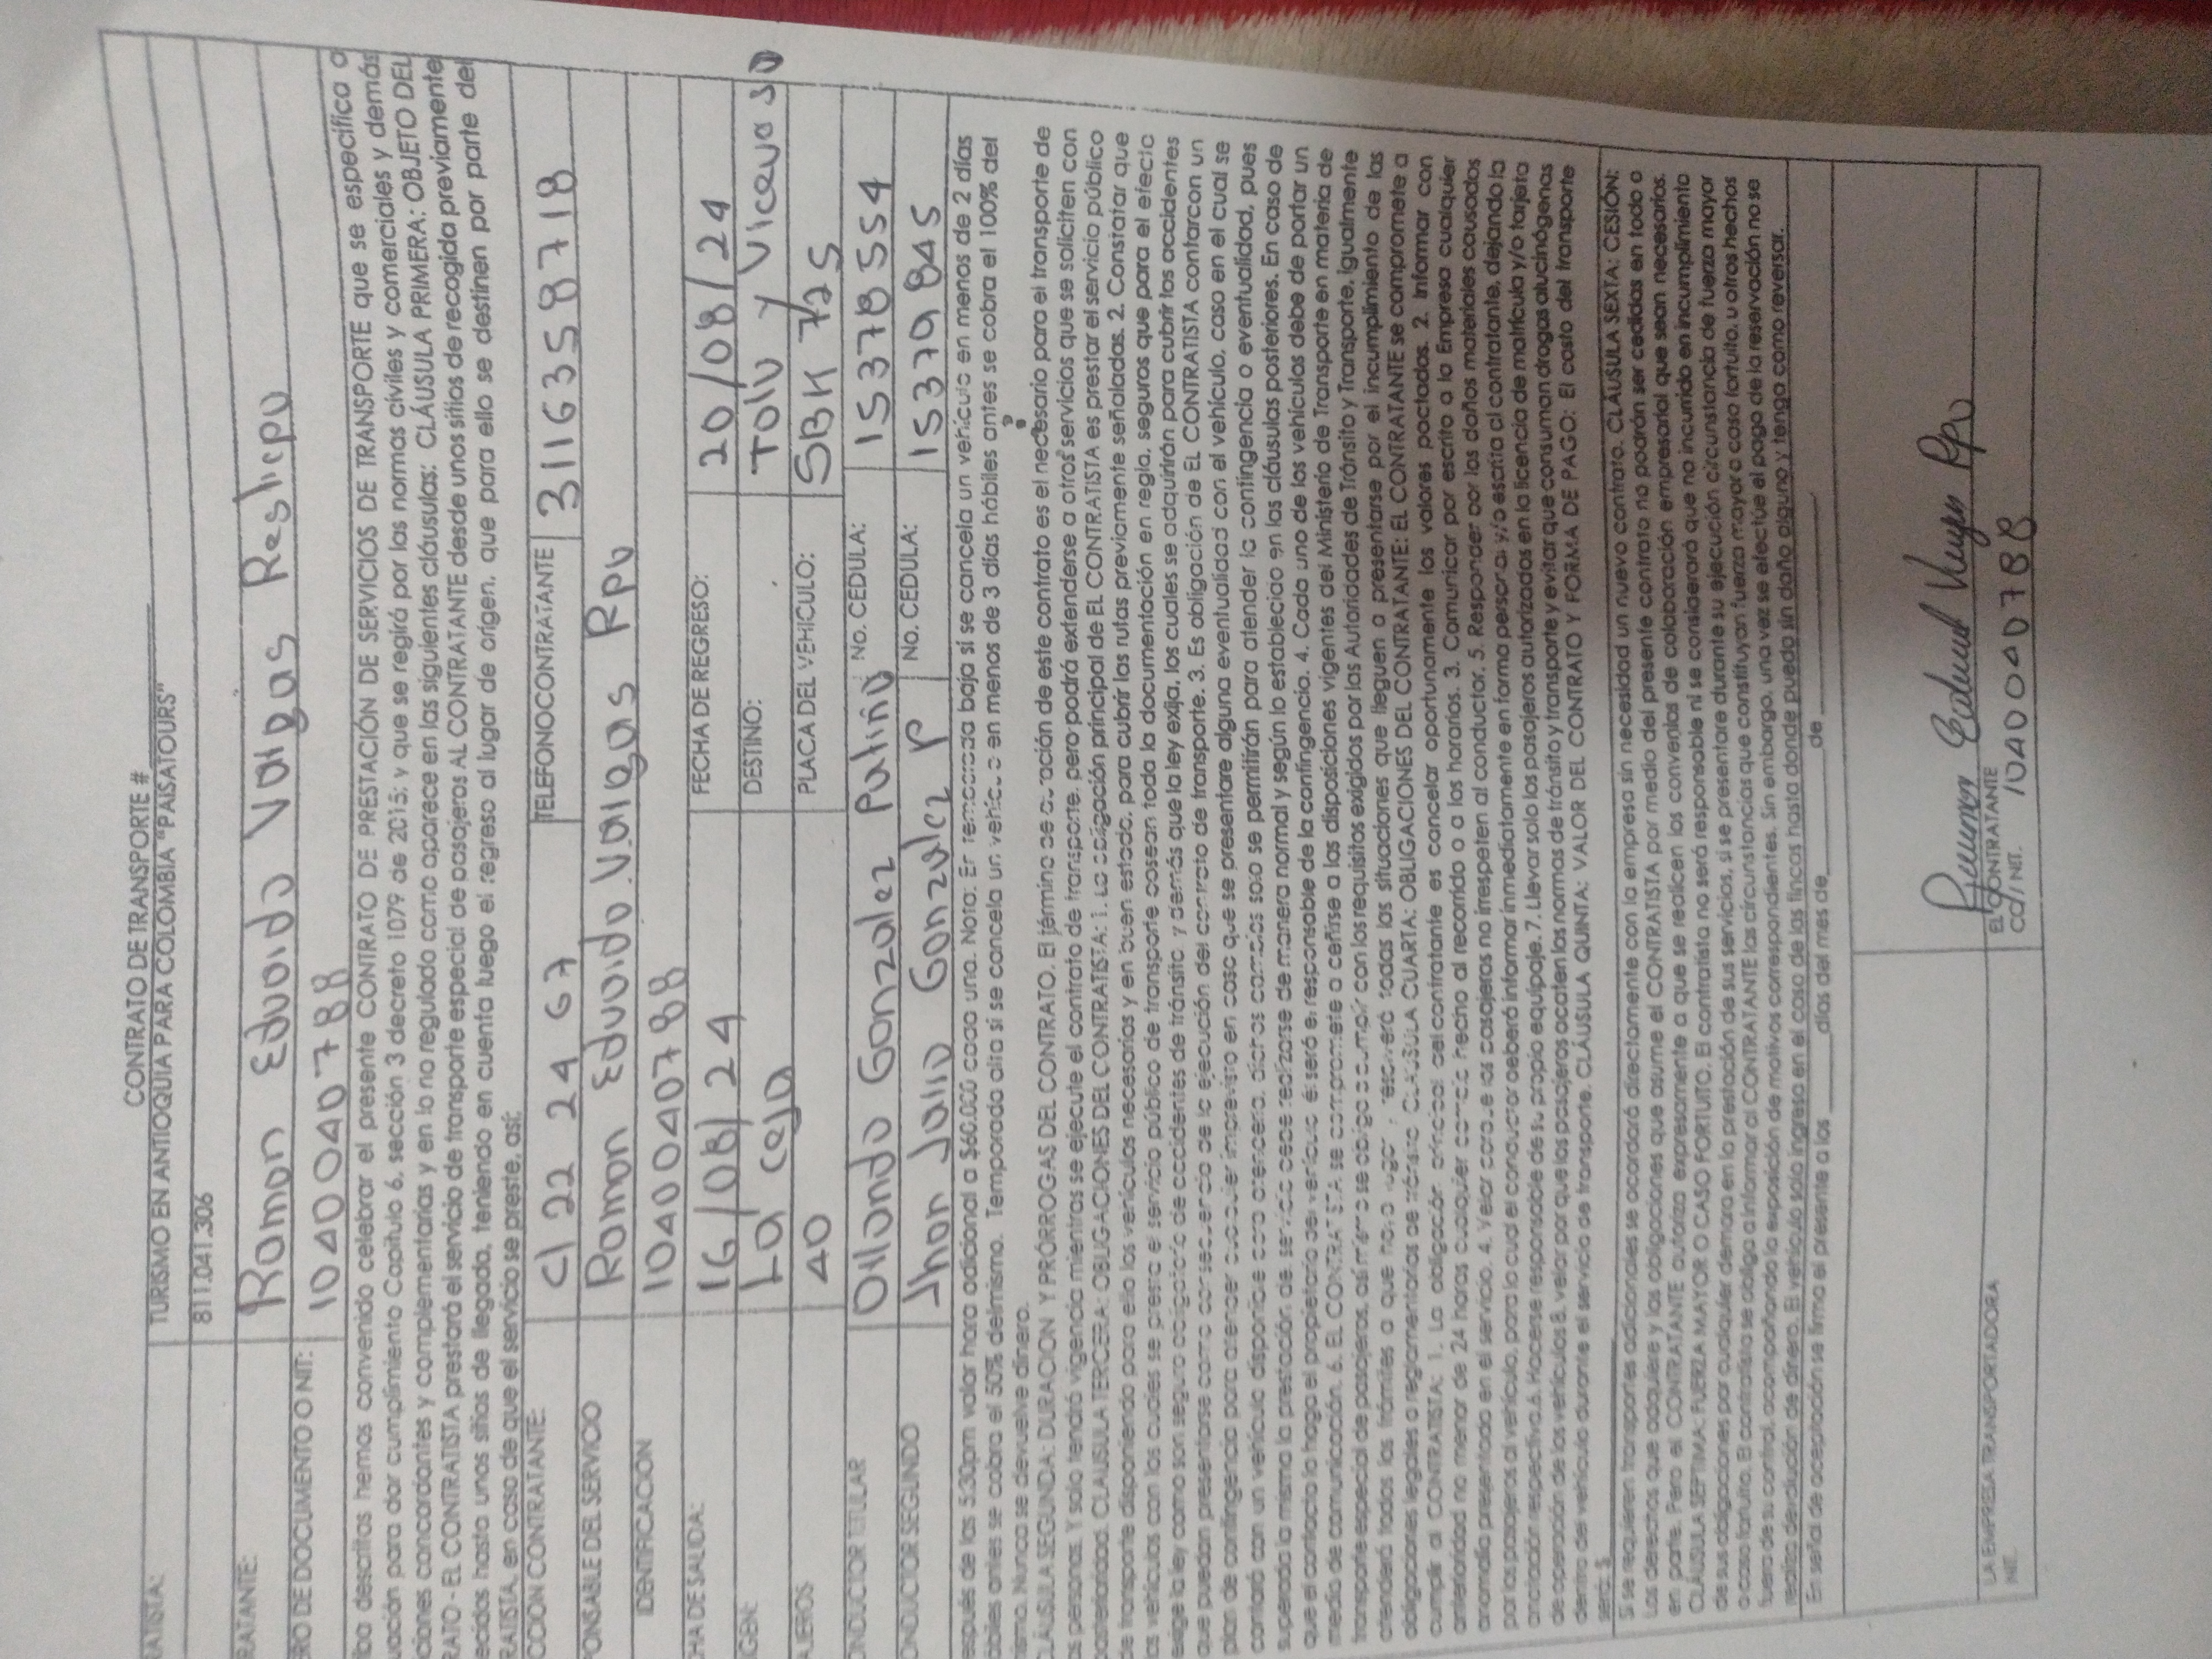 CONTRATO DE TRANSPORTE #
RATISTA: TURISMO EN ANTIOQUIA PARA COLOMBIA "PAISATOURS"
811.041.306
RATANTE: Ramon Eduardo Vargas Restrepo
ERO DE DOCUMENTO O NIT: 1040040788
iba descritas hemos convenido celebrar el presente CONTRATO DE PRESTACIÓN DE SERVICIOS DE TRANSPORTE que se especifica a
uación para dar cumplimiento Capítulo 6, sección 3 decreto 1079 de 2015; y que se regirá por las normas civiles y comerciales y demás
ciones concordantes y complementarias y en lo no regulado como aparece en las siguientes cláusulas: CLÁUSULA PRIMERA: OBJETO DEL
RATO - EL CONTRATISTA prestará el servicio de transporte especial de pasajeros AL CONTRATANTE desde unos sitios de recogida previamente
ecidos hasta unos sitios de llegada, teniendo en cuenta luego el regreso al lugar de origen, que para ello se destinen por parte del
RATISTA, en caso de que el servicio se preste, así:
CCION CONTRATANTE: Cl 22 24 67 TELEFONO CONTRATANTE 3116358718
PONSABLE DEL SERVICIO Ramon Eduardo Vargas Rpo
IDENTIFICACION 1040040788
HA DE SALIDA: 16/08/24 FECHA DE REGRESO: 20/08/24
IGEN: La ceja DESTINO: Tolu y Viceversa
AJEROS 40 PLACA DEL VEHICULO: SBK 725
ONDUCTOR TITULAR Ollando Gonzalez Patiño No. CEDULA: 15378554
ONDUCTOR SEGUNDO Jhon Jairo Gonzalez P No. CEDULA: 15379845
espués de las 5:30pm valor hora adicional a $60.000 cada una. Nota: En temporada baja si se cancela un vehículo en menos de 2 días
ábiles antes se cobra el 50% del mismo. Temporada alta si se cancela un vehículo en menos de 3 días hábiles antes se cobra el 100% del
mismo. Nunca se devuelve dinero.
CLÁUSULA SEGUNDA: DURACION Y PRÓRROGAS DEL CONTRATO. El término de duración de este contrato es el necesario para el transporte de
as personas. Y solo tendrá vigencia mientras se ejecute el contrato de transporte, pero podrá extenderse a otros servicios que se soliciten con
posterioridad. CLAUSULA TERCERA: OBLIGACIONES DEL CONTRATISTA: 1. La obligación principal de EL CONTRATISTA es prestar el servicio público
de transporte disponiendo para ello los vehículos necesarios y en buen estado, para cubrir las rutas previamente señaladas. 2. Constatar que
los vehículos con los cuales se presta el servicio público de transporte posean toda la documentación en regla, seguros que para el efecto
exige la ley como son seguro obligatorio de accidentes de tránsito y demás que la ley exija, los cuales se adquirirán para cubrir los accidentes
que puedan presentarse como consecuencia de la ejecución del contrato de transporte. 3. Es obligación de EL CONTRATISTA contar con un
plan de contingencia para atender cualquier imprevisto en caso que se presentare alguna eventualidad con el vehículo, caso en el cual se
contará con un vehículo disponible para atenderla, dichos cambios solo se permitirán para atender la contingencia o eventualidad, pues
superada la misma la prestación de servicio debe realizarse de manera normal y según lo establecido en las cláusulas posteriores. En caso de
que el contacto lo haga el propietario del vehículo él será el responsable de la contingencia. 4. Cada uno de los vehículos debe de portar un
medio de comunicación. 6. EL CONTRATISTA se compromete a ceñirse a las disposiciones vigentes del Ministerio de Transporte en materia de
transporte especial de pasajeros, así mismo se obliga a cumplir con los requisitos exigidos por las Autoridades de Tránsito y Transporte. Igualmente
atenderá todos los trámites a que haya lugar y resolverá todas las situaciones que lleguen a presentarse por el incumplimiento de las
obligaciones legales o reglamentarias de tránsito CLÁUSULA CUARTA: OBLIGACIONES DEL CONTRATANTE: EL CONTRATANTE se compromete a
cumplir al CONTRATISTA: 1. La obligación principal del contratante es cancelar oportunamente los valores pactados. 2. Informar con
anterioridad no menor de 24 horas cualquier cambio hecho al recorrido o a los horarios. 3. Comunicar por escrito a la Empresa cualquier
anomalía presentada en el servicio. 4. Velar porque los pasajeros no irrespeten al conductor. 5. Responder por los daños materiales causados
por los pasajeros al vehículo, para lo cual el conductor deberá informar inmediatamente en forma personal y/o escrita al contratante, dejando la
anotación respectiva. 6. Hacerse responsable de su propio equipaje. 7. Llevar solo los pasajeros autorizados en la licencia de matrícula y/o tarjeta
de operación de los vehículos 8. velar por que los pasajeros acaten las normas de tránsito y transporte y evitar que consuman drogas alucinógenas
dentro del vehículo durante el servicio de transporte. CLÁUSULA QUINTA: VALOR DEL CONTRATO Y FORMA DE PAGO: El costo del transporte
será: $
Si se requieren transportes adicionales se acordará directamente con la empresa sin necesidad un nuevo contrato. CLÁUSULA SEXTA: CESIÓN:
Los derechos que adquiere y las obligaciones que asume el CONTRATISTA por medio del presente contrato no podrán ser cedidas en todo o
en parte. Pero el CONTRATANTE autoriza expresamente a que se realicen los convenios de colaboración empresarial que sean necesarios.
CLÁUSULA SEPTIMA: FUERZA MAYOR O CASO FORTUITO. El contratista no será responsable ni se considerará que ha incurrido en incumplimiento
de sus obligaciones por cualquier demora en la prestación de sus servicios, si se presentare durante su ejecución circunstancia de fuerza mayor
o caso fortuito. El contratista se obliga a informar al CONTRATANTE las circunstancias que constituyan fuerza mayor o caso fortuito, u otros hechos
fuera de su control, acompañando la exposición de motivos correspondientes. Sin embargo, una vez se efectúe el pago de la reservación no se
realiza devolución de dinero. El vehículo solo ingresa en el caso de las fincas hasta donde pueda sin daño alguno y tenga como reversar.
En señal de aceptación se firma el presente a los ______ días del mes de ______ de ______
Ramon Eduardo Vargas Rpo
LA EMPRESA TRANSPORTADORA EL CONTRATANTE
NIT. CC/NIT. 1040040788